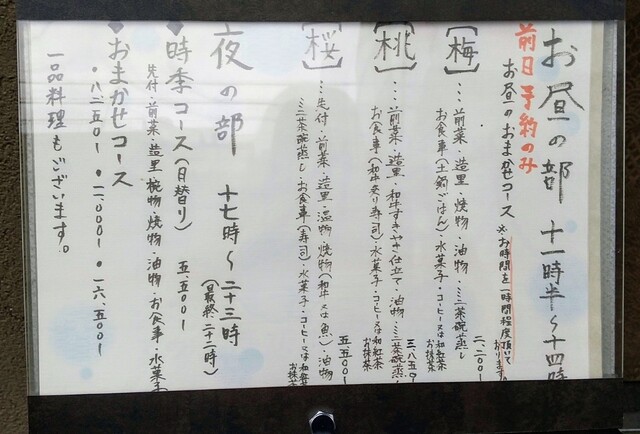 お昼の部 十一時半〜十四時
前日予約のみ
お昼のおまかせコース ※お時間を一時間程度頂いております。
【梅】…前菜・造里・焼物・油物・ミニ茶碗蒸し 二、二〇〇
お食事(土鍋ごはん)・水菓子・コーヒー又は和紅茶
お抹茶
【桃】…前菜・造里・和牛すきやき仕立て・油物・ミニ茶碗蒸し 三、八五〇
お食事(和牛炙り寿司)・水菓子・コーヒー又は和紅茶
お抹茶
【桜】…先付・前菜・造里・温物・焼物(和牛又は魚)・油物 五、五〇〇
ミニ茶碗蒸し・お食事(寿司)・水菓子・コーヒー又は和紅茶
お抹茶
夜の部 十七時〜二十三時
(最終二十二時)
◆時季コース(日替り) 五、五〇〇
先付・前菜・造里・椀物・焼物・油物・お食事・水菓子
◆おまかせコース
・八、二五〇 ・一一、〇〇〇 ・一六、五〇〇
一品料理もございます。